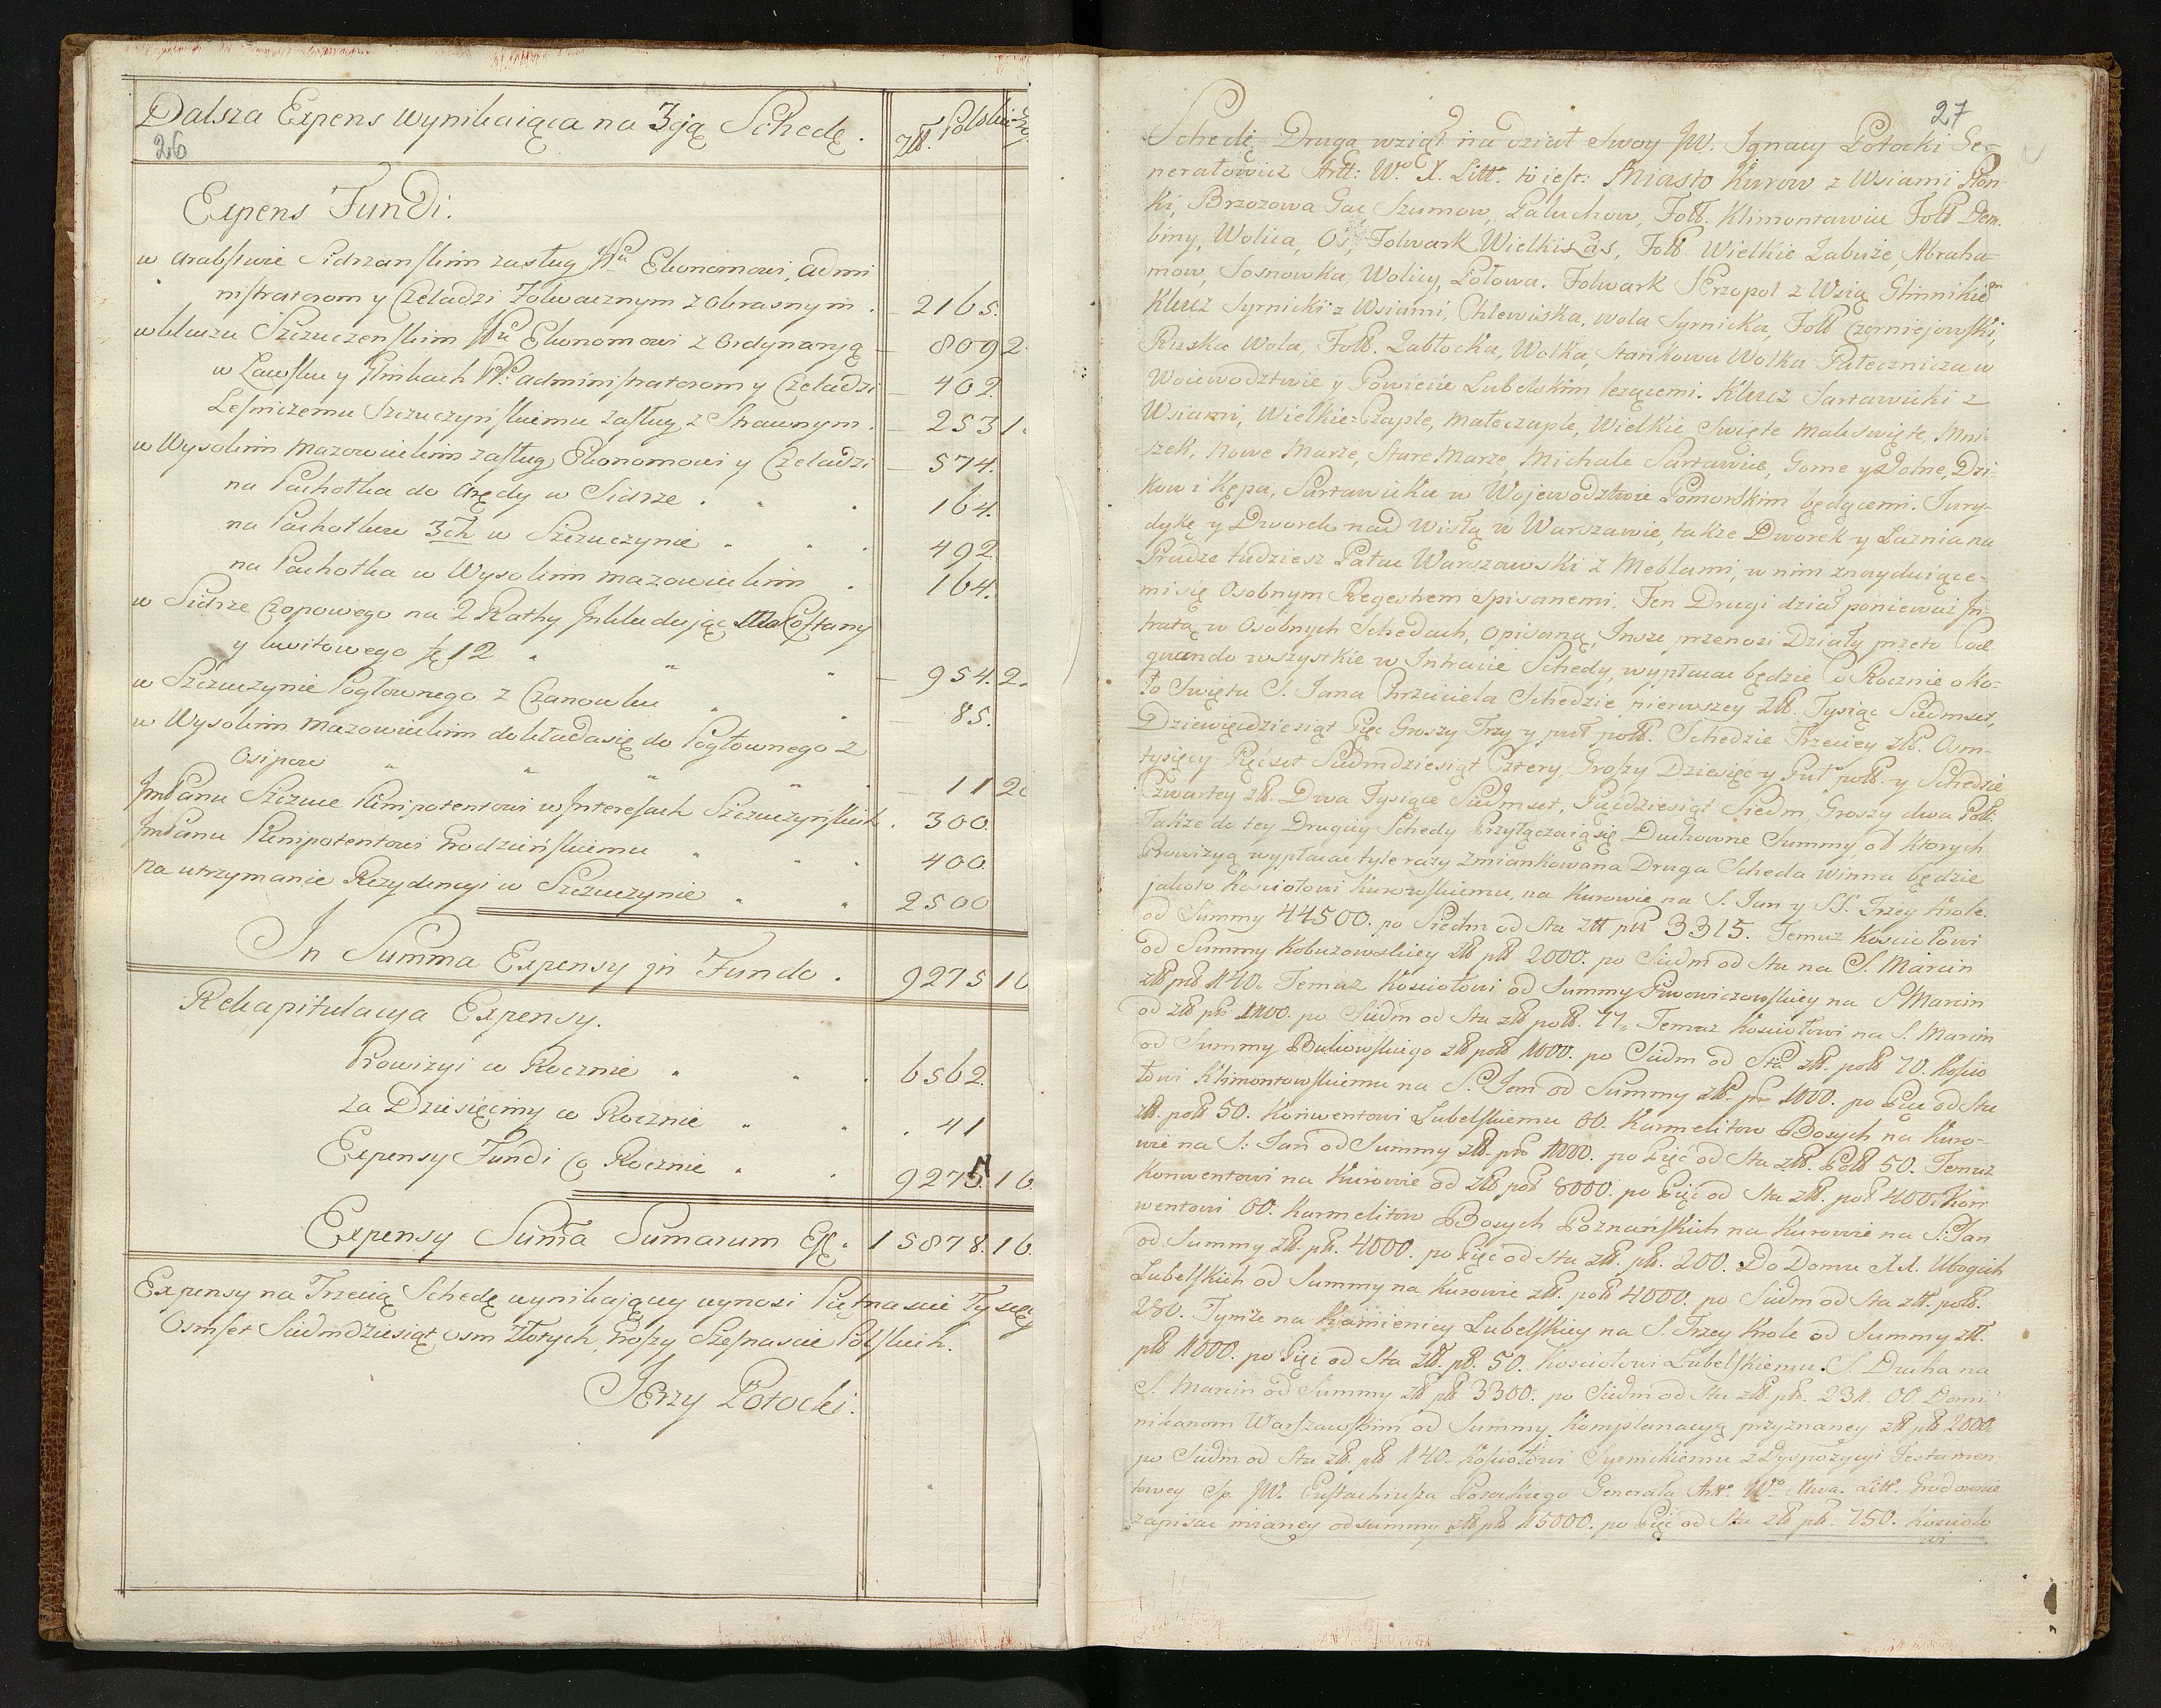 Dalsza Expens wynikaiąca na 3cią Schedę.
Złł. Polskie
26
Expens Fundi.
w Arabstwie Sidrzanskim zasług Ekonomowi, admi
nistratorom y Czeladzi Folwacznym z Okrasnym . 2165.
w kluczu Szczuczenskim Ekonomowi z Ordynaryą 809 2
w Lawsku y Glinkach administratorom y Czeladzi 402.
Lesniczemu Szczuczyńskiemu zasług z Strawnym. 253 1.
w Wysokim Mazowieckim zasług Ekonomowi y Czeladzi 574.
na Pachołka do Arędy w Sidrze . 164.
na Pachołkow 3ch w Szczuczynie 492.
na Pachołka w Wysokim Mazowieckim . 164.
w Sidrze Czopowego na 2 Rathy Inkludując
y kwitowego 12 954. 2.
w Szczuczynie Pogłownego z Czanowku 85.
w Wysokim Mazowieckim dokładasię do Pogłownego z
Osipow 11 2
ImPanu Szczuce Plenipotentowi w Interesach Szczuczyńskich . 300.
ImPanu Plenipotentowi Grodzieńskiemu 400.
na utrzymanie Rezydencyi w Szczuczynie 2500
In Summa Expensy in Fundo . 9275 16
Rekapitulacya Expensy.
Prowizyi co Rocznie 6562.
za Dziesięciny co Rocznie 41
Expensy Fundi co Rocznie 9275. 16.
Expensy Suma Sumarum 15878. 16.
Expensy na Trzecią Schedę wynikaiący wynosi Piętnascie Tysięcy
Osmset Siedmdziesiąt osm złotych, Groszy Szesnascie Polskich.
Jerzy Potocki.
27
Schedę Drugą wziął na dział Swoy JW. Ignacy Potocki Ge-
nerałowicz Artt: Wo X. Litto to iest: Miasto Kurow z Wsiami Płon-
ki, Brzozowa Gac, Szumow, Paluchow, Folw. Klimontowice Folw Dem-
biny, Wolica, Oś, Folwark Wielkis Las, Folw. Wielkie Zabuże, Abraha-
mow, Sosnowka, Wolicy, Połowa. Folwark Przypol z Wsią Glinnikiem
Klucz Syrnicki z Wsiami, Chlewiska, Wola Syrnicka, Folw Czerniejowski,
Ruska Wola, Folw. Zabłocka, Wolka, Stańkowa Wolka Pałecznicza w
Woiewodztwie y Powiecie Lubelskim leżącemi. Klucz Sartawicki z
Wsiami, Wielkie-Czaple, Małe czaple, Wielkie Swięte Małe swięte, Mni-
szek, Nowe Marże, Stare Marże, Michale Sartawice, Gorne y Dolne, Dzi-
kow i Kępa, Sartawicka w Wojewodztwie Pomorskim będącemi. Jury-
dykę y Dworek nad Wisłą w Warszawie, także Dworek y Łaznia na
Pradze tudziesz Pałac Warszawski z Meblami, w nim znayduiące-
mi się Osobnym Regestrem spisanemi. Ten Drugi dział ponieważ In-
tratą w Osobnych Schedach, opisaną, Insze przenosi Działy przeto Coe
quando wszystkie w Intracie Schedy, wypłacac będzie co Rocznie oko-
ło Swięta S. Jana Chrzciciela Schedzie pierwszey Złł. Tysiąc Siedmset,
Dziewięcdziesiąt Pięc Groszy Trzy y puł poll. Schedzie Trzeciey złł. Osm-
tysięcy Pięcset Siedmdziesiąt Cztery, Groszy Dziesięc y Puł poll. y Schedzie
Czwartey złł. Dwa Tysiące Siedmset, Pięcdziesiąt Siedm, Groszy dwa Poll.
Także do tey Drugiey Schedy Przyłączaią się Duchowne Summy od ktorych
Prowizyą wypłacac tyle razy zmiankowana Druga Scheda winna będzie
jakoto Kosciołowi Kurowskiemu, na Kurowie na S. Jan y SS. Trzey Krole.
od Summy 44500. po Siedm od Sta złł pll 3315. Temuż Kosciołowi
od Summy Kobuzowskiey złł pll 2000. po Siedm od Sta na S. Marcin
złł pll 140. Temuż Kosciołowi od Summy na S Marcin
od złł pll 1100. po Siedm od Sta złł poll. 77. Temuż Kosciołowi na S. Marcin
od Summy Bukowskiego złł poll 1000. po Siedm od Sta złł. poll 70. Koscio
łowi Klimontowskiemu na S. Jan od Summy złł. pll 1000. po Pięc od Sta
złł. poll 50. Konwentowi Lubelskiemu OO. Karmelitow Bosych na Kuro-
wie na S. Jan od Summy złł. pll 1000. po Pięć od Sta złł. Poll 50. Temuż
Konwentowi na Kurowie od złł poll 8000. po Pięć od Sta złł. poll 400. Kon
wentowi OO. Karmelitow Bosych Poznańskich na Kurowie na S. Jan
od Summy złł. pll. 4000. po Pięc od sta złł. pll. 200. Do Domu XX. Ubogich
Lubelskich od Summy na Kurowie złł. poll 4000. po Siedm od Sta złł. poll.
280. Tymże na Kamienicy Lubelskiey na S. Trzey Krole od Summy złł.
pll 1000. po Pięc od Sta złł. pll. 50. Kosciołowi Lubelskiemu S. Ducha na
S. Marcin od Summy złł pll 3300. po Siedm od Sta złł. pll. 231. OO. Domi-
nikanom Warszawskim od Summy Komplanacyą przyznaney złł pll 2000.
po Siedm od Sta złł. pll 140. Kosciołowi Syrnickiemu z Dyspozycyi Testamen
towey Sp. JW. Eustachiusza Potockiego Generała Artt. Wo Xtwa. Litt. Grodownie
zapisac mianey od summy złł pll 15000. po Pięć od Sta złł pll. 750. Koscioło
wi